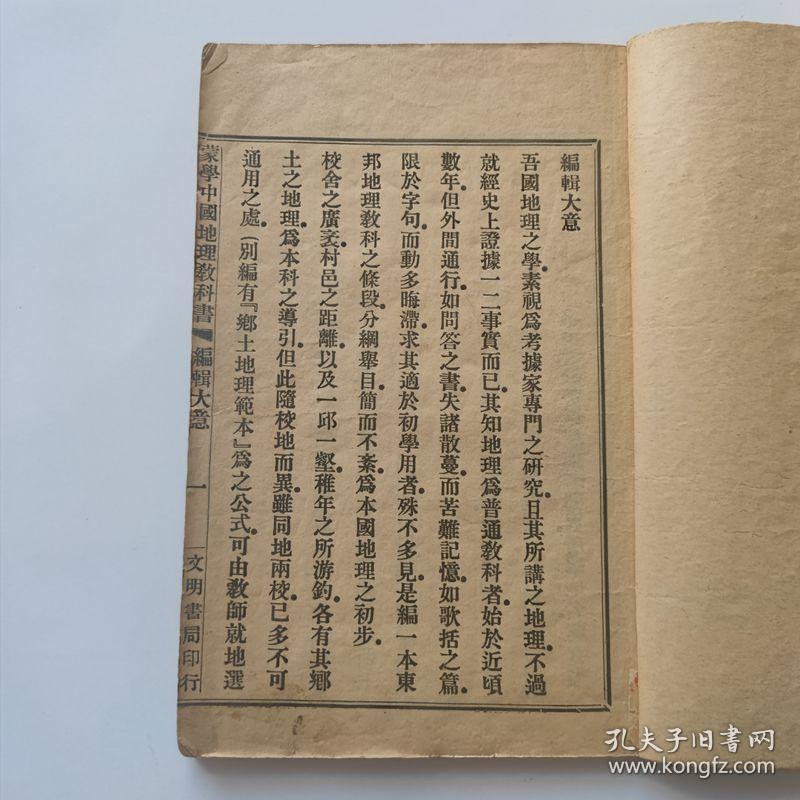 編輯大意
吾國地理之學。素視爲考據家專門之研究。且其所講之地理。不過
就經史上證據一二事實而已。其知地理爲普通敎科者。始於近頃
數年。但外間通行。如問答之書。失諸散蔓。而苦難記憶。如歌括之篇。
限於字句。而動多晦滯。求其適於初學用者。殊不多見。是編一本東
邦地理敎科之條段。分綱舉目。簡而不紊。爲本國地理之初步。
校舍之廣袤。村邑之距離。以及一邱一壑。稚年之所游釣。各有其鄉
土之地理。爲本科之導引。但此隨校地而異。雖同地兩校。已多不可
通用之處。(別編有『鄉土地理範本』爲之公式。可由敎師就地選
蒙學中國地理敎科書 編輯大意 一 文明書局印行
孔夫子旧书网
www.kongfz.com